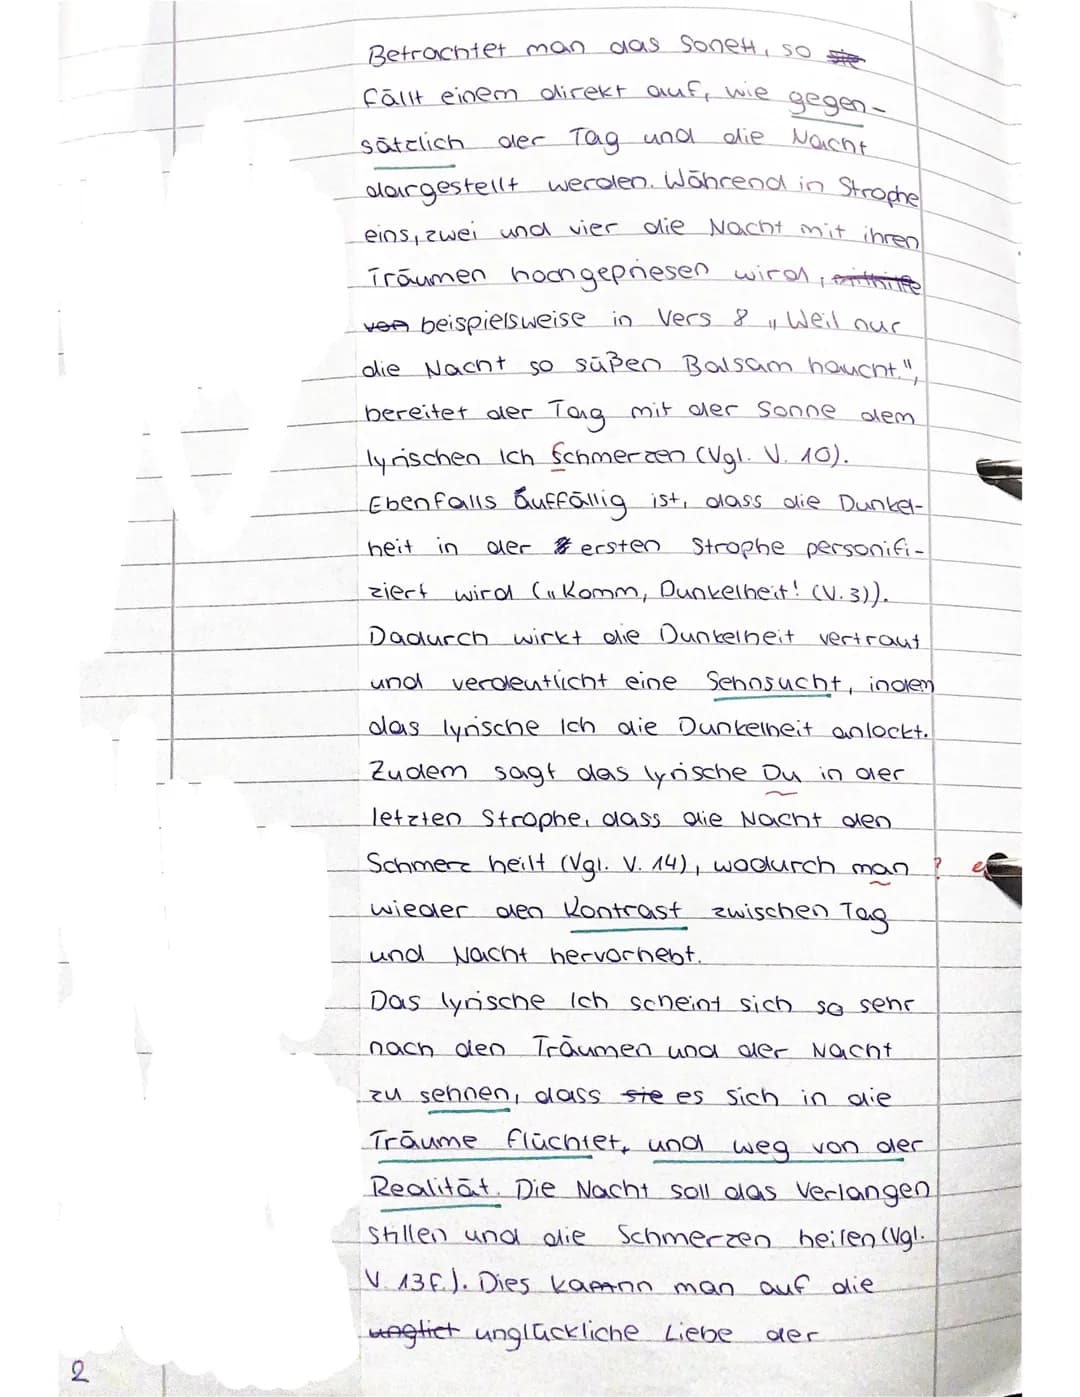 Betrachtet man das Sonett, so sie
fällt einem direkt auf, wie gegen-
sätzlich der Tag und die Nacht
dargestellt werden. Während in Strophe
eins, zwei und vier die Nacht mit ihren
Träumen hochgepriesen wird, mithilfe
von beispielsweise in Vers 8 „Weil nur
die Nacht so süßen Balsam haucht.",
bereitet der Tag mit der Sonne dem
lyrischen Ich Schmerzen (Vgl. V. 10).
Ebenfalls auffällig ist, dass die Dunkel-
heit in der ersten Strophe personifi-
ziert wird („Komm, Dunkelheit! (V.3)).
Dadurch wirkt die Dunkelheit vertraut
und verdeutlicht eine Sehnsucht, indem
das lyrische Ich die Dunkelheit anlockt.
Zudem sagt das lyrische Du in der
letzten Strophe, dass die Nacht den
Schmerz heilt (Vgl. V. 14), wodurch man ?
wieder den Kontrast zwischen Tag
und Nacht hervorhebt.
Das lyrische Ich scheint sich so sehr
nach den Träumen und der Nacht
zu sehnen, dass sie es sich in die
Träume flüchtet, und weg von der
Realität. Die Nacht soll das Verlangen
stillen und die Schmerzen heilen (Vgl.
V. 13f.). Dies kann man auf die
unglict unglückliche Liebe der
2